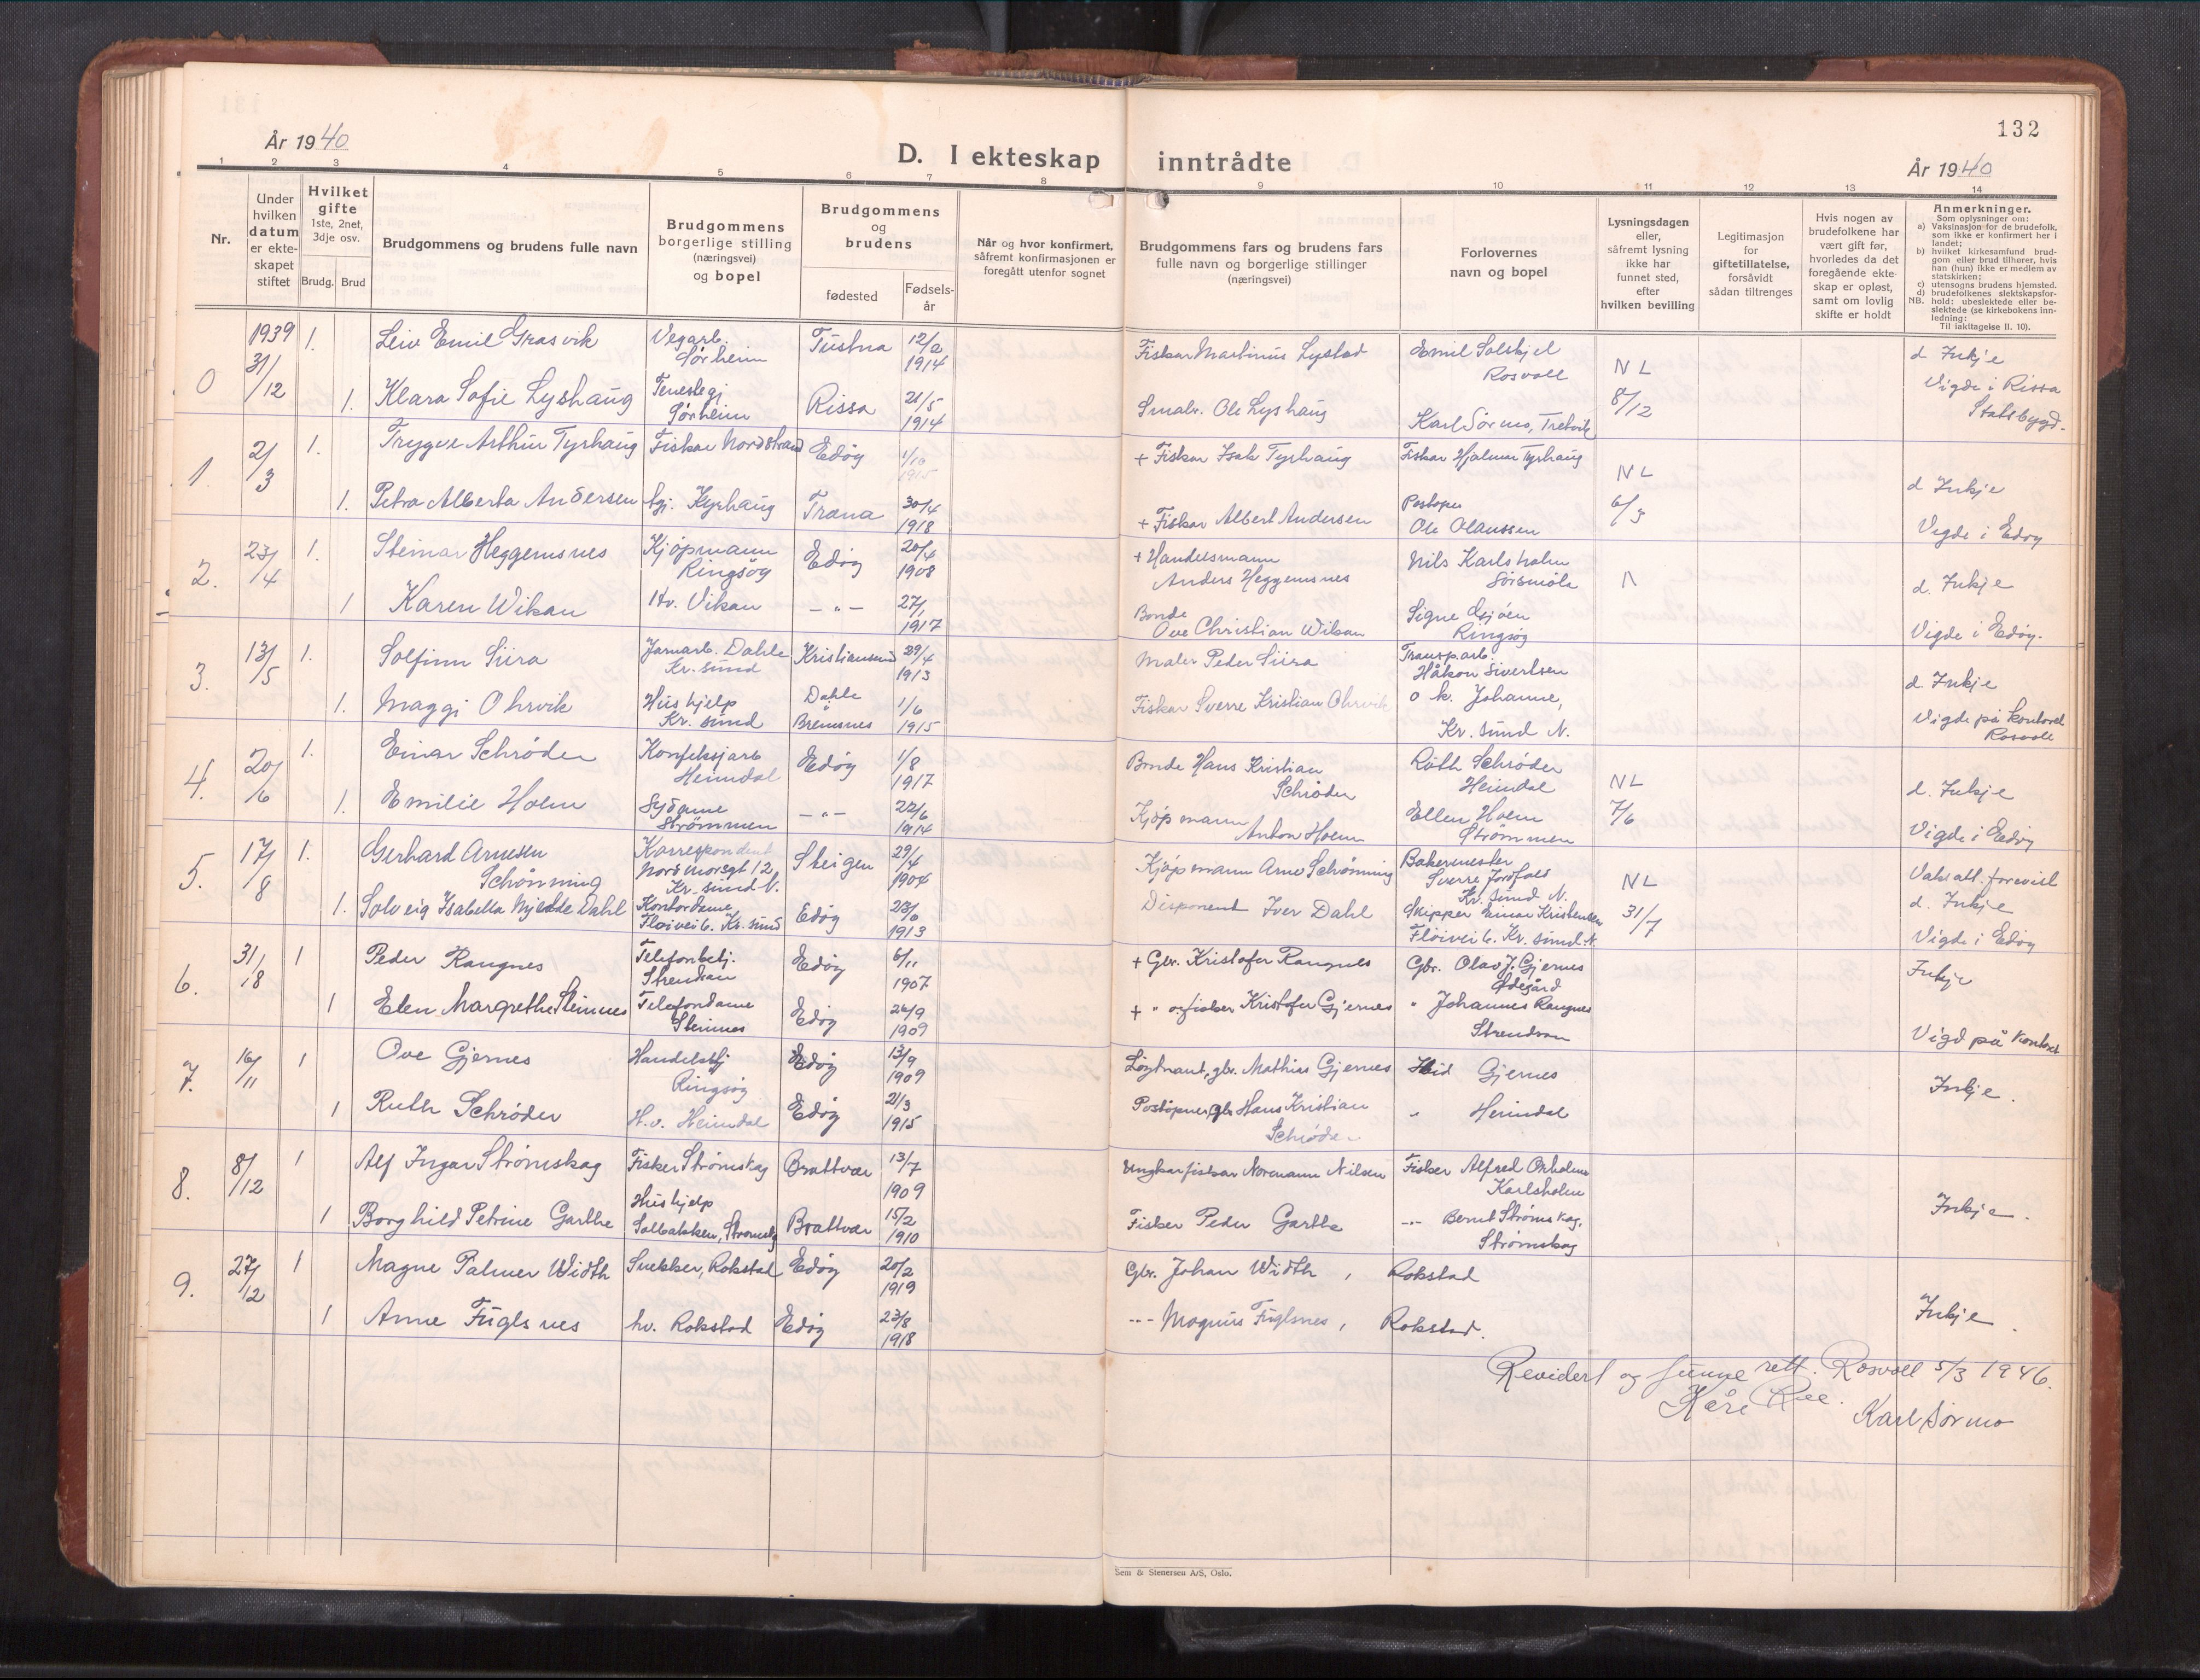 132
År 1940
D. I ekteskap inntrådte
År 1940
1 2 3 4 5 6 7 8 9 10 11 12 13 14
Nr.
Under hvilken datum er ekte-skapet stiftet
Hvilket gifte
1ste, 2net, 3dje osv.
Brudg. Brud
Brudgommens og brudens fulle navn
Brudgommens borgerlige stilling (næringsvei) og bopel
Brudgommens og brudens
fødested
Fødsels-år
Når og hvor konfirmert, såfremt konfirmasjonen er foregått utenfor sognet
Brudgommens fars og brudens fars fulle navn og borgerlige stillinger (næringsvei)
Forlovernes navn og bopel
Lysningsdagen eller, såfremt lysning ikke har funnet sted, efter hvilken bevilling
Legitimasjon for giftetillatelse, forsåvidt sådan tiltrenges
Hvis nogen av brudefolkene har vært gift før, hvorledes da det foregående ekte-skap er opløst, samt om lovlig skifte er holdt
Anmerkninger.
Som oplysninger om:
a) Vaksinasjon for de brudefolk, som ikke er konfirmert her i landet;
b) hvilket kirkesamfund brud-gom eller brud tilhører, hvis han (hun) ikke er medlem av statskirken;
c) utensogns brudens hjemsted.
d) brudefolkenes slektskapsfor-hold: ubeslektede eller be-slektede (se kirkebokens inn-ledning:
NB. Til iakttagelse II. 10).
0 1939 31/12 1. Leiv Emil Grasvik Vegarb. Sørheim Tustna 12/2 1914 Fiskar Martinus Lystad Emil Solskjel Rosvoll NL d. Inkje
1. Klara Sofie Lyshaug Tenestegj Sørheim Rissa 21/5 1914 Smabr. Ole Lyshaug Karl Sørmo, Tretvik 8/12 Vigde i Rissa Stadsbygd.
1. 2/3 1. Trygve Arthur Tyrhaug Fiskar Nordstrand Edøy 1/10 1915 + Fiskar Isak Tyrhaug Fiskar Hjalmar Tyrhaug NL d Inkje
1. Petra Alberta Andersen Tyrhaug Træna 30/4 1918 + Fiskar Albert Andersen Postopn Ole Olaussen 6/3 Vigde i Edøy
2. 23/4 1. Steinar Heggemsnes Kjøpmann Ringsøy Edøy 20/4 1908 + Handelsmann Anders Heggemsnes Nils Karlsholm Sørsmøla d. Inkje
1 Karen Wikan Hv. Vikan -"- 27/1 1917 Bonde Ove Christian Wikan Signe Gjøen Ringsøy Vigde i Edøy.
3. 13/5 1. Solfinn Siira Jarnarb. Dahle Kr. sund Kristiansund 29/4 1913 Maler Peder Siira Transp.arb. Håkon Sivertsen d. Inkje
1. Maggi Ohrvik Hushjelp Kr. sund Dahle Bremsnes 1/6 1915 Fiskar Sverre Kristian Ohrvik o k. Johanne, Kr. sund N. Vigde på kontoret Rosvoll
4. 20/6 1. Einar Schrøder Konfeksjarb Heimdal Edøy 1/8 1917 Bonde Hans Kristian Schrøder Ruth Schrøder Heimdal NL d. Inkje
1. Emilie Holm Sydame Strømmen -"- 22/6 1914 Kjøpmann Anton Holm Ellen Holm Strømmen 7/6 Vigde i Edøy
5. 17/8 1. Gerhard Arnesen Schønning Korrespondent Nordmoregt 12 Kr. sund N. Steigen 29/4 1904 Kjøpmann Arne Schønning Bakermester Sverre Jordfald Kr. sund N. NL Vaks att. forevist d. Inkje
1. Solveig Isabella Dahl Kontordame Fløivei 6. Kr. sund Edøy 1913 Disponent Iver Dahl Skipper Einar Kristensen Fløivei 6. Kr. sund. N. 31/7 Vigde i Edøy
6. 31/8 1 Peder Rangnes Telefonbetj. Strendran Edøy 6/11 1907 + Gbr. Kristofer Rangnes Gbr. Olav J. Gjernes Ødegård Inkje
1 Elen Margrethe Steinnes Telefondame Steinnes Edøy 26/9 1909 + " og fisker Kristofer Gjernes " Johannes Rangnes Strendran Vigd på kontoret
7. 16/11 1 Ove Gjernes Handelsbtj Ringsøy Edøy 13/9 1909 Løytnant, gbr. Mathias Gjernes Gjernes Inkje.
1 Ruth Schrøder H.v. Heimdal Edøy 21/3 1915 Postopner, gbr Hans Kristian Schrøder " Heimdal
8. 8/12 1 Alf Ingar Strømskag Fisker Strømskag Brattvær 13/7 1909 Ungkar fiskar Normann Nilsen Fisker Alfred Orholm Karlsholm Inkje.
1 Borghild Petrine Garthe Hushjelp Solbakken, Strømskag Brattvær 15/2 1910 Fisker Peder Garthe -"- Bernt Strømskag. Strømskag
9. 27/12 1 Magne Palmer Width Snekker, Rokstad Edøy 20/2 1919 Gbr. Johan Width, Rokstad
1 Anne Fuglsnes hv. Rokstad Edøy 23/8 1918 -"- Magnus Fuglsnes, Rokstad. Inkje.
Revidert og funne rett. Rosvoll 5/3 1946.
Kåre Ree.
Karl Sørmo
Sem & Stenersen A/S, Oslo.